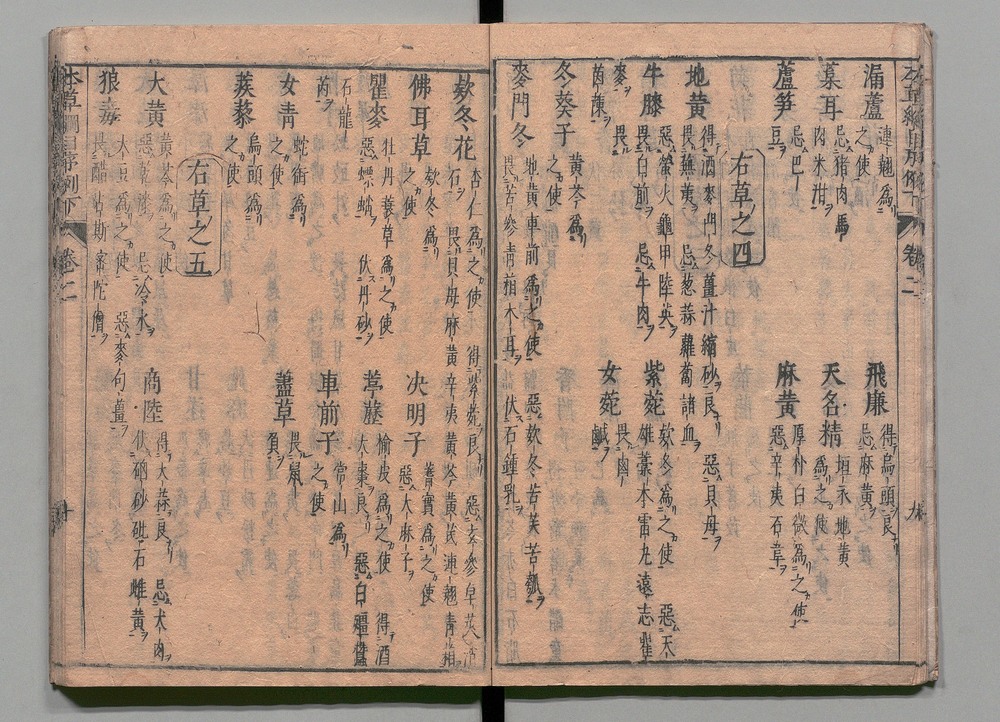 本草綱目序例下 卷二 九
漏蘆 連翹為之使 飛廉 得烏頭良
忌麻黃
葈耳 忌猪肉馬
肉米泔 天名精 垣衣地黃
為之使
蘆笋 忌巴
豆 麻黃 厚朴白微為之使
惡辛夷石韋
右草之四
地黃 得酒麥門冬薑汁縮砂良 惡貝母
畏蕪荑 忌葱蒜蘿蔔諸血
牛膝 惡螢火龜甲陸英
畏白前 忌牛肉 紫菀 款冬為之使 惡天
雄藁本雷丸遠志瞿
麥 畏
茵蔯 女菀 畏鹵
鹹
冬葵子 黃芩為
之使
麥門冬 地黃車前為之使 惡款冬苦芙苦瓠
畏苦參青葙木耳 伏石鍾乳
欵冬花 杏仁為之使 得紫菀良 惡玄參皂莢消
石 畏貝母麻黃辛夷黃芩黃芪連翹青葙
佛耳草 欵冬為
之使 决明子 蓍實為之使
惡大麻子
瞿麥 牡丹蓑草為之使
惡螵蛸 伏丹砂 葶藶 榆皮為之使 得酒
大棗良 惡白殭蠶
石龍
芮 車前子 常山為
之使
女青 蛇銜為
之使 藎草 畏鼠
負
蒺藜 烏頭為
之使
右草之五
大黃 黃芩為之使
惡乾漆 忌冷水 商陸 得大蒜良 忌犬肉
伏硇砂砒石雌黃
狼毒 大豆為之使 惡麥句薑
畏醋占斯密陀僧
本草綱目序例下 卷二 十